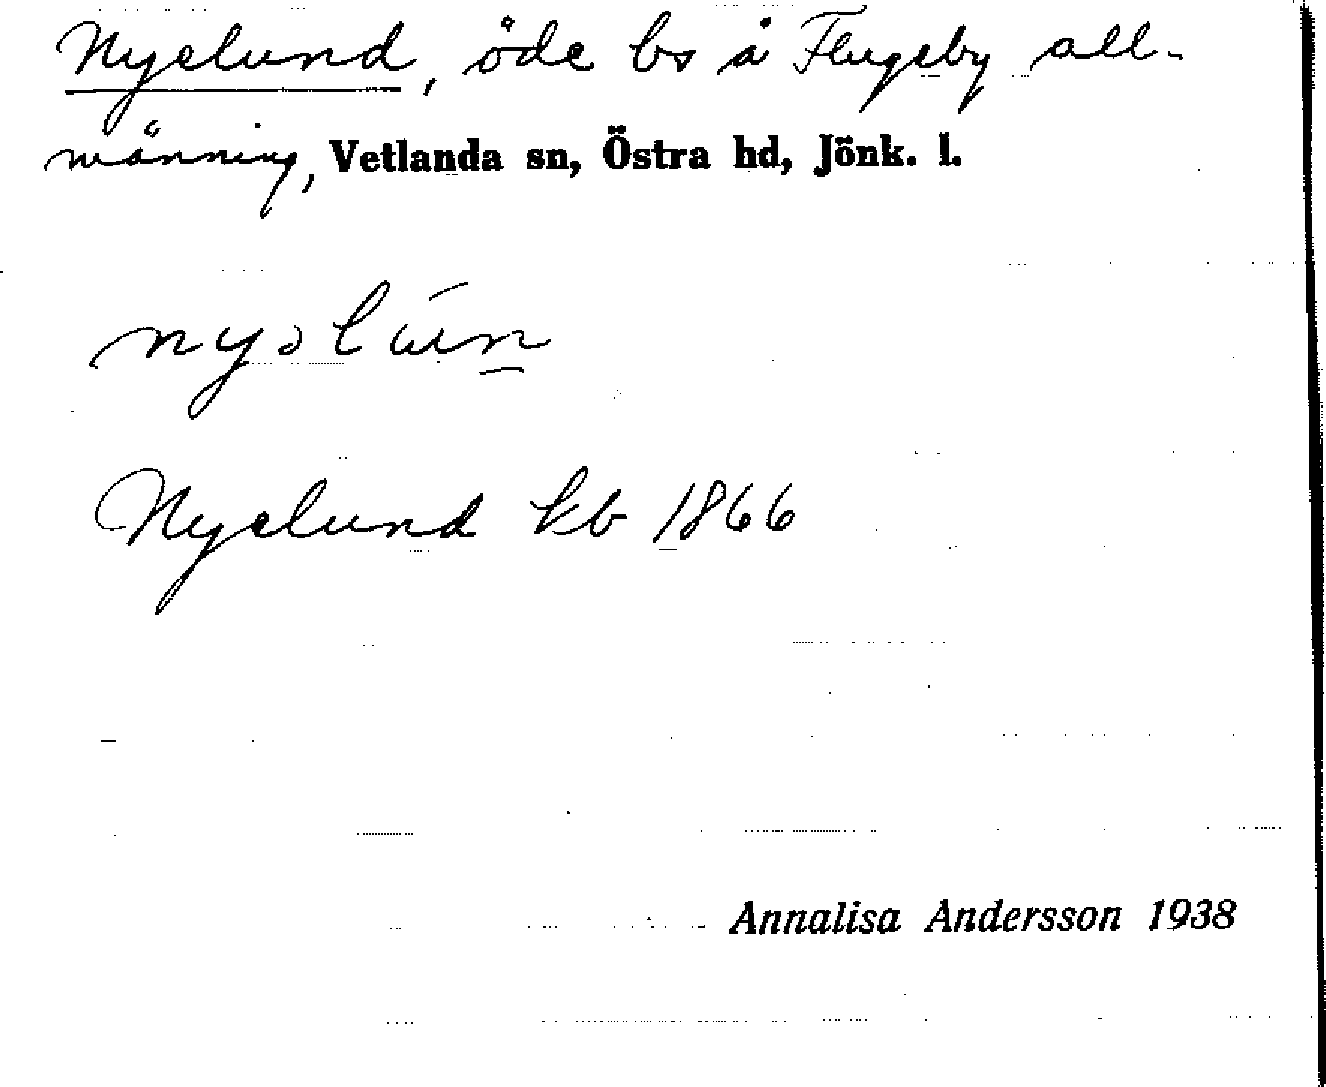 Nyelund, öde bs å Flugeby all-
männing, Vetlanda sn, Östra hd, Jönk. l.
Nyelund kb 1866
Annalisa Andersson 1938